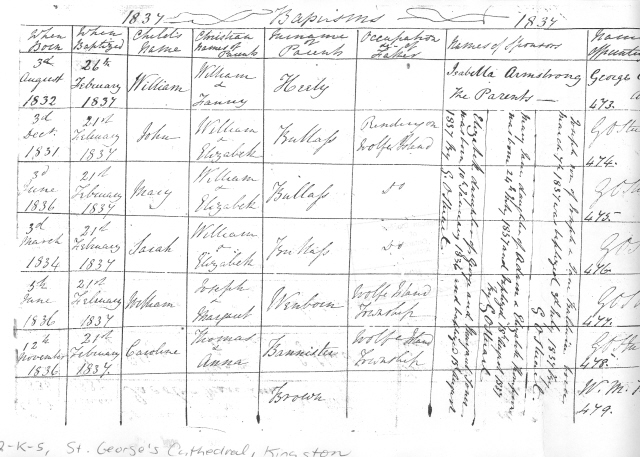 1837 Baptisms 1837
When Born When Baptized Child's Name Christian Names of Parents Surname of Parents Occupation of Father Names of Sponsors
3d August 1832 26th February 1837 William William & Fanney Heely Isabella Armstrong The Parents George 473.
3d Dect. 1831 21st February 1837 John William & Elizabeth Bullass Residing on Wolfe Island G O Stu 474.
3d June 1836 21st February 1837 Mary William & Elizabeth Bullass Do G O S 475
3d March 1834 21st February 1837 Sarah William & Elizabeth Bullass Do G O 476
5th June 1836 21st February 1837 William Joseph & Margaret Wenborn Wolfe Island Township G O S 477.
12th November 1836 21st February 1837 Caroline Thomas & Anna Bannister Wolfe Island Township G O Stu 478.
Brown W. M. 479.
Elizabeth daughter of George and
1837 By G. O. Stuart
Mary Jane daughter of Adam & Elizabeth
was born 24th May 1837 and baptized 13 August 1837
By G O Stuart
Joseph son of Joseph & Ann Baldwin born
March 7th, 1837 was baptized 9th July 1837 By
G O Stuart
2-K-5, St. George's Cathedral, Kingston